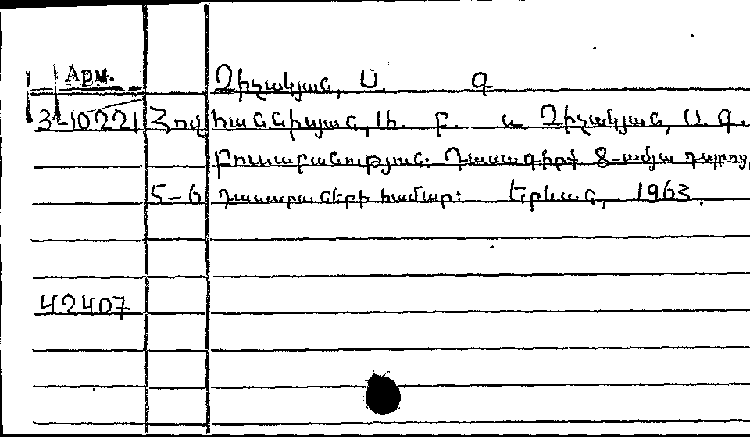 Арм.
Ղիշակյան, Ս. Գ
3-10221 Հովհաննիսյան, Խ. Բ. և Ղիշակյան, Ս. Գ.
Բուսաբանություն: Դասագիրք 8-ամյա դպրոց,
5-6 դասարանների համար: Երևան, 1963.
42407